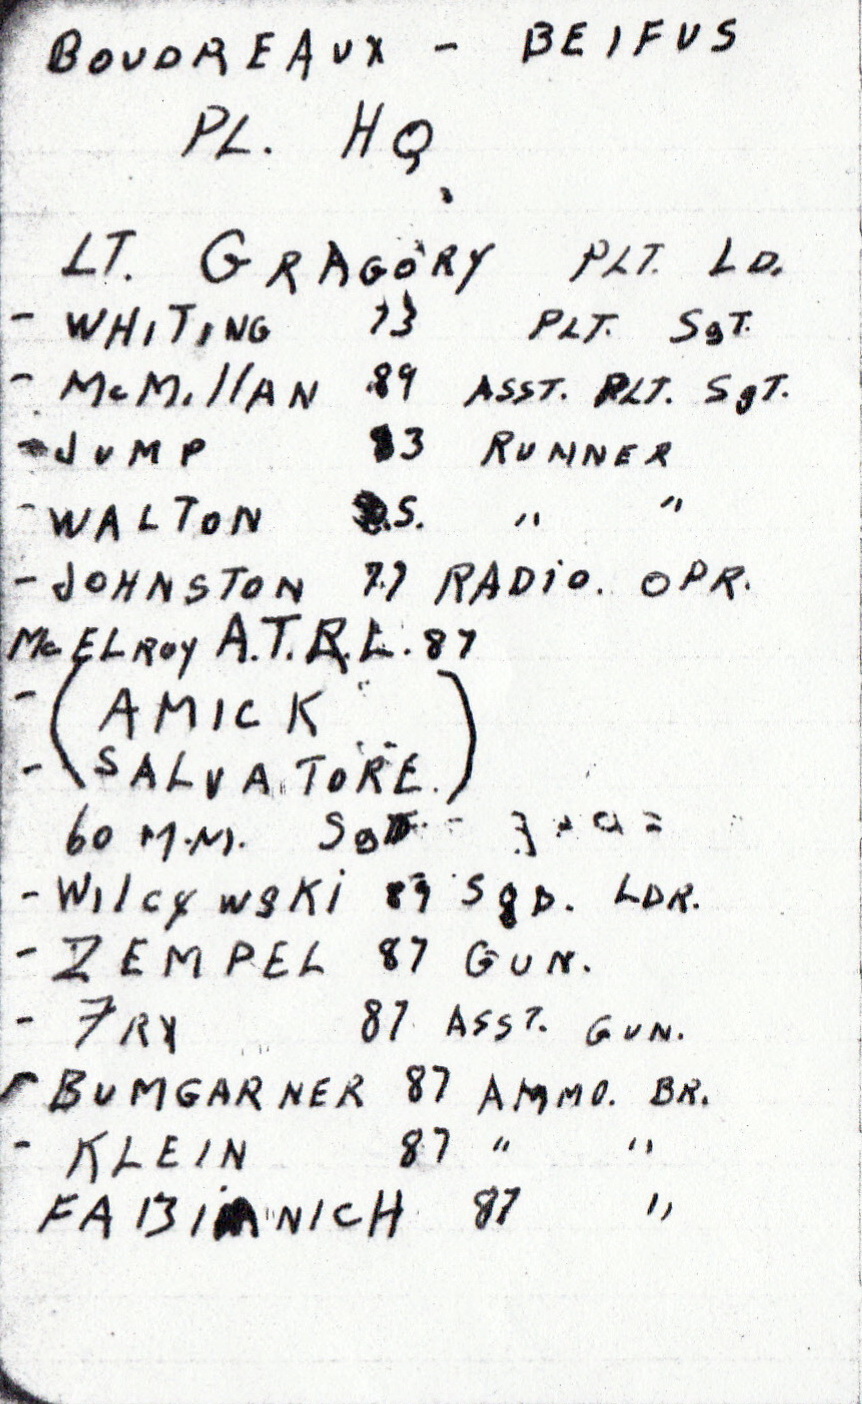 BOUDREAUX - BEIFUS
PL. HQ.
LT. GRAGORY PLT. LD.
- WHITING 73 PLT. SgT.
- McMillAN 89 ASST. PLT. SgT.
- JUMP 83 RUNNER
- WALTON S. " "
- JOHNSTON 77 RADiO. OPR.
McELROY A.T.R.L. 87
- (AMICK
- SALVATORE.)
60 M.M.
- WilcywsKi 89 SqD. LDR.
- ZEMPEL 87 GUN.
- FRY 87 ASST. GUN.
- BUMGARNER 87 AMMO. BR.
- KLEIN 87 " "
FABIANICH 87 "